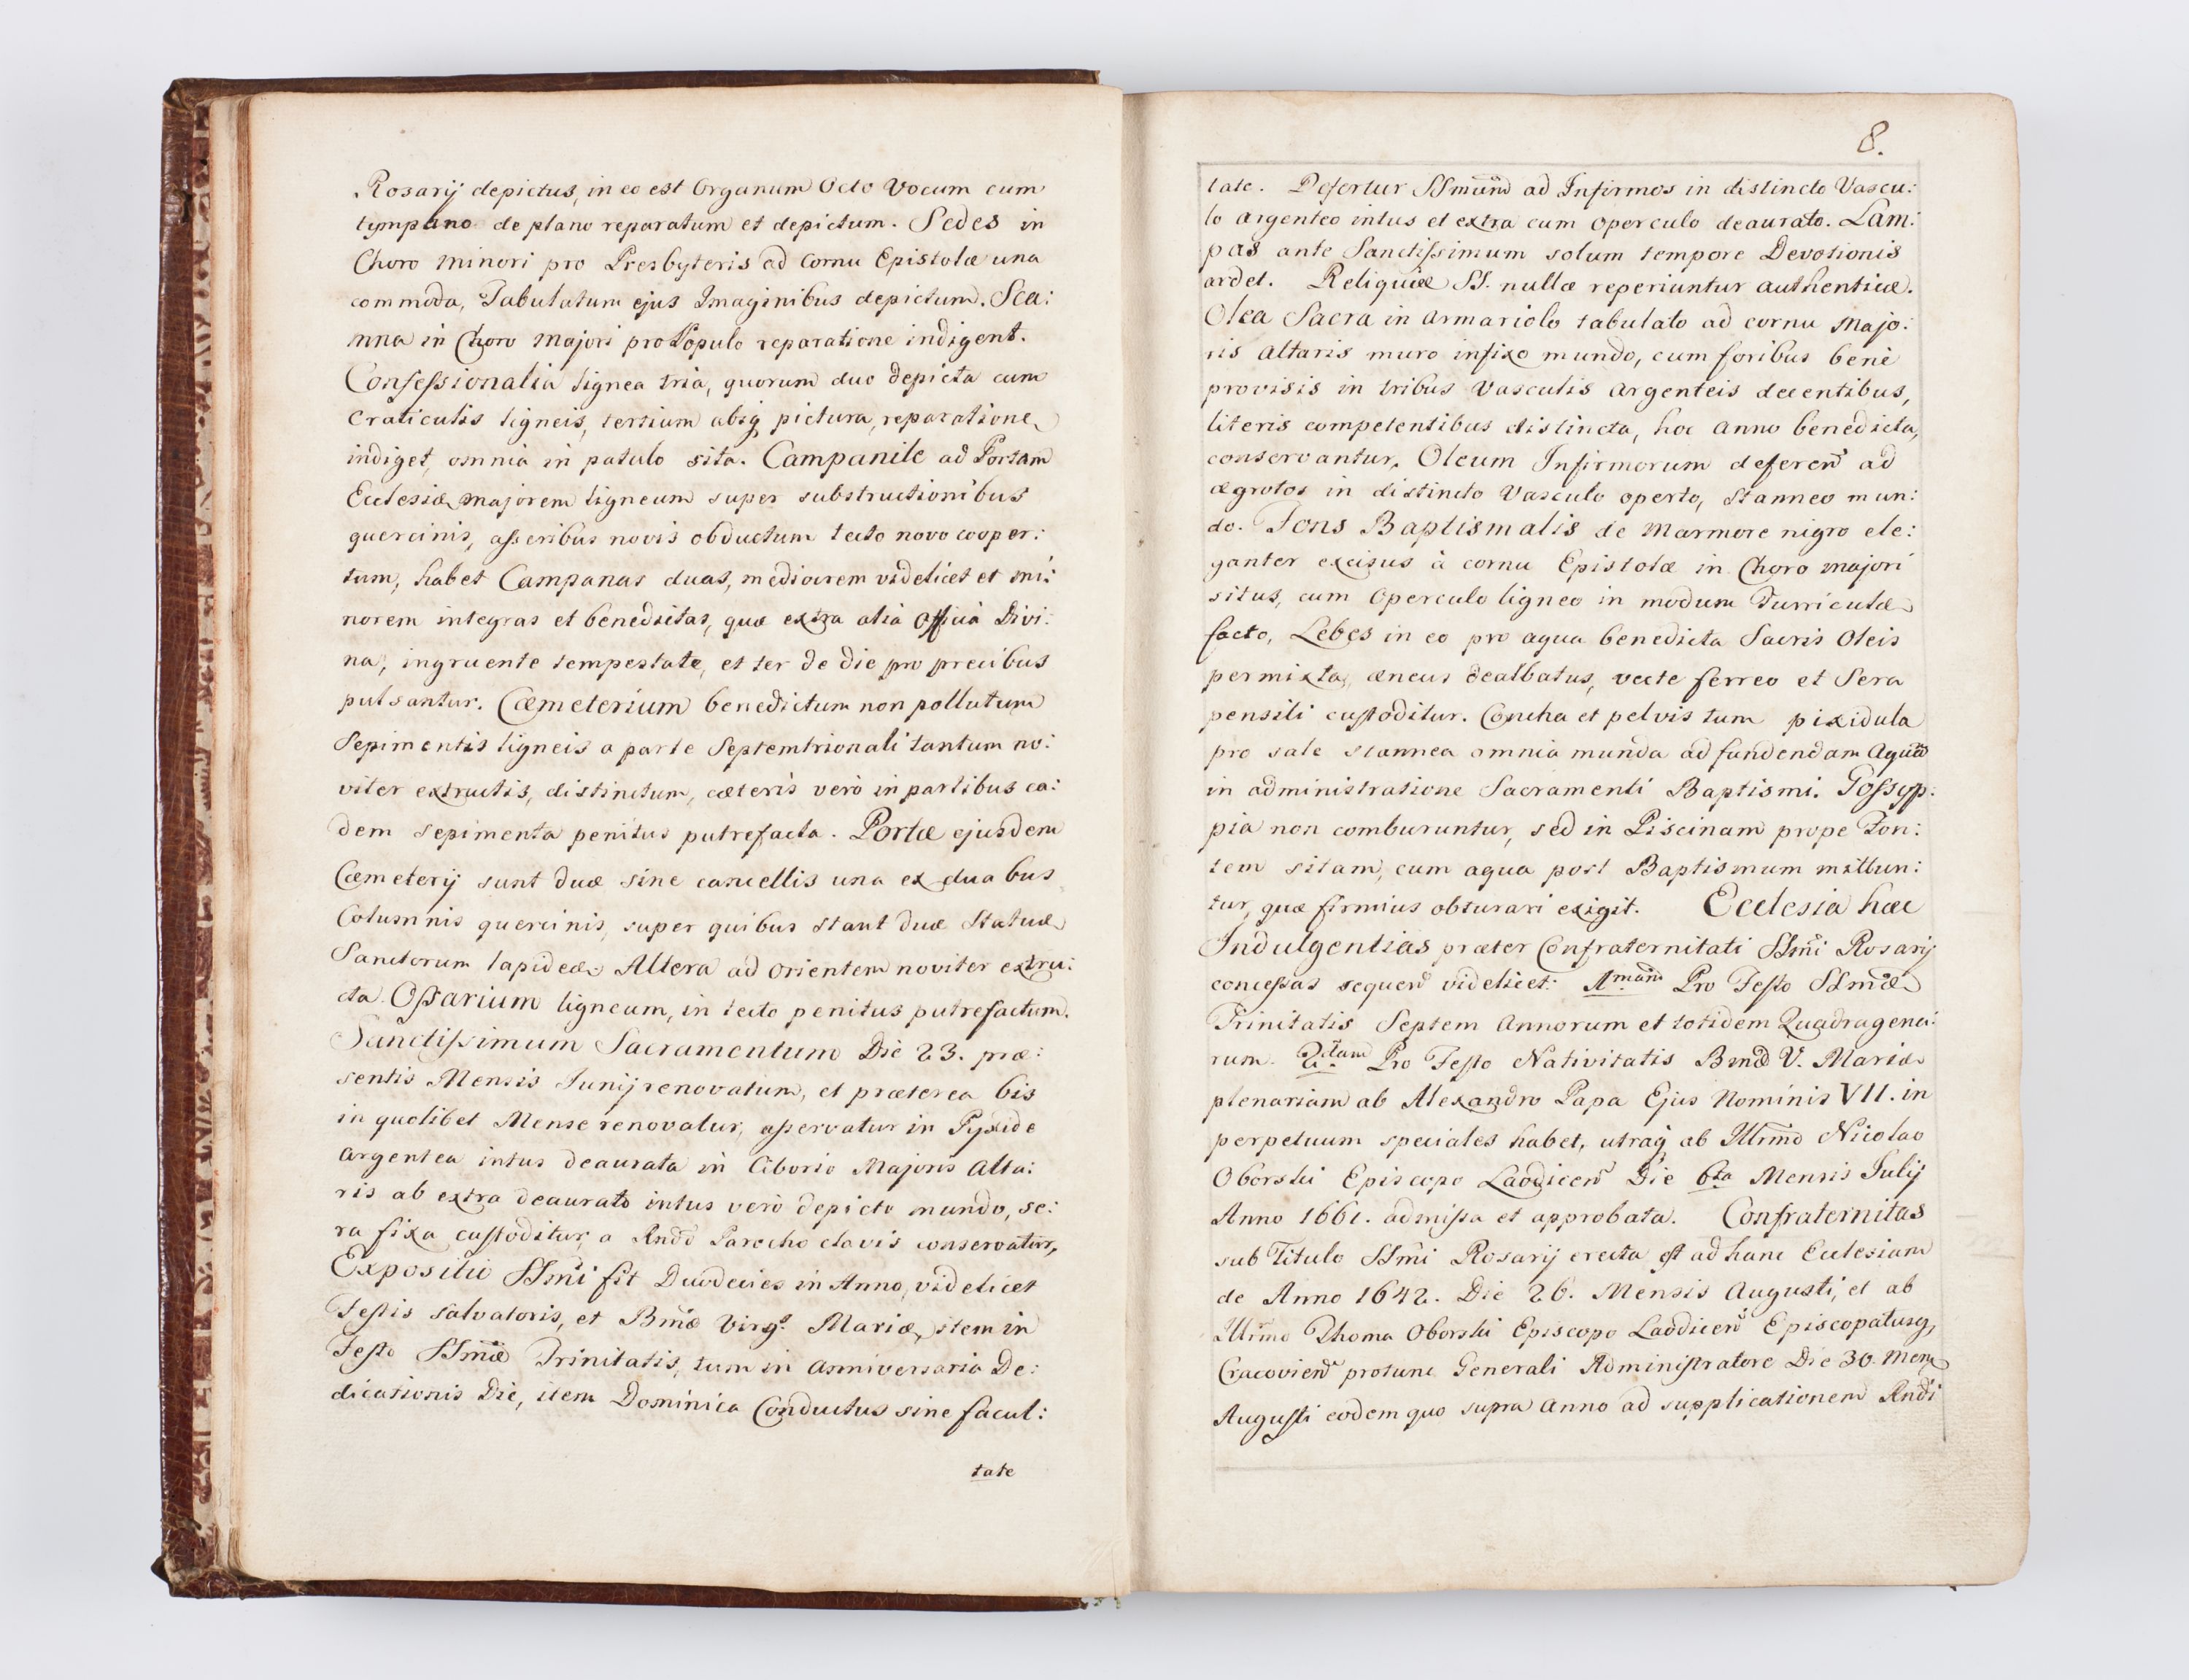 Rosarij depictus, in eo est Organum Octo Vocum cum
tympano de plano reparatum et depictum. Sedes in
Choro minori pro Presbyteris ad Cornu Epistolæ una
commoda, Tabulatum ejus Imaginibus depictum. Sca:
mna in Choro majori pro Populo reparatione indigent.
Confessionalia lignea tria, quorum duo depicta cum
Craticulis ligneis, tertium absq pictura, reparatione
indiget, omnia in patulo sita. Campanile ad Portam
Ecclesiæ majorem ligneum super substructionibus
quercinis, asseribus novis obductum tecto novo cooper:
tum, habet Campanas duas, mediocrem videlicet et mi:
norem integras et benedictas, quæ extra alia Officia Divi:
na, ingruente tempestate, et ter de die pro precibus
pulsantur. Cæmeterium benedictum non pollutum
Sepimentis ligneis a parte Septemtrionali tantum no:
viter extructis, distinctum, cæteris verò in partibus ea:
dem sepimenta penitus putrefacta. Portæ ejusdem
Cæmeterij sunt duæ sine cancellis una ex duabus
Columnis quercinis, super quibus stant duæ Statuæ
Sanctorum lapideæ. Altera ad Orientem noviter extru:
cta. Ossarium ligneum, in tecto penitus putrefactum.
Sanctissimum Sacramentum Die 23. præ:
sentis Mensis Junij renovatum, et præterea bis
in quolibet Mense renovatur, asservatur in Pyxide
argentea intus deaurata in Ciborio Majoris Alta:
ris ab extra deaurato intus verò depicto mundo, se:
ra fixa custoditur, a Rndo Parocho clavis conservatur,
Expositio SSmi fit Duodecies in Anno, videlicet
Festis Salvatoris, et Bmæ Virgs Mariæ, item in
Festo SSmæ Trinitatis, tum in Anniversaria De:
dicationis Die, item Dominica Conductus sine facul:
tate
8.
tate. Defertur SSmum ad Infirmos in distincto Vascu:
lo argenteo intus et extra cum Operculo deaurato. Lam:
pas ante Sanctissimum solum tempore Devotionis
ardet. Reliquiæ SS. nullæ reperiuntur authenticæ.
Olea Sacra in armariolo tabulato ad cornu Majo:
ris Altaris muro infixo mundo, cum foribus benè
provisis in tribus Vasculis argenteis decentibus,
literis competentibus distincta, hoc anno benedicta,
conservantur. Oleum Infirmorum deferen ad
ægrotos in distincto Vasculo operto, Stanneo mun:
do. Fons Baptismalis de Marmore nigro ele:
ganter excisus à cornu Epistolæ in Choro majori
situs, cum Operculo ligneo in modum Turriculæ
facto, Lebes in eo pro aqua benedicta Sacris Oleis
permixta, æneus dealbatus, vecte ferreo et Sera
pensili custoditur. Concha et pelvis tum pixidula
pro sale stannea omnia munda ad fundendam Aquam
in administratione Sacramenti Baptismi. Gossyp:
pia non comburuntur, sed in Piscinam prope Fon:
tem sitam, cum aqua post Baptismum mittun:
tur, quæ firmius obturari exigit. Ecclesia hæc
Indulgentias præter Confraternitati SSmi Rosarij
concessas sequen videlicet: 1mam Pro Festo SSmæ
Trinitatis Septem Annorum et totidem Quadragena:
rum. 2dam Pro Festo Nativitatis Bmæ V. Mariæ
plenariam ab Alexandro Papa Ejus Nominis VII. in
perpetuum speciales habet, utraq ab Illmo Nicolao
Oborski Episcopo Laodicen Die 6ta Mensis Julij
Anno 1661. admissa et approbata. Confraternitas
sub Titulo SSmi Rosarij erecta est ad hanc Ecclesiam
de Anno 1642. Die 26. Mensis Augusti, et ab
Illmo Thoma Oborski Episcopo Laodicen Episcopatusq,
Cracovien protunc Generali Administratore Die 30. Mens
Augusti eodem quo supra Anno ad supplicationem Rndi